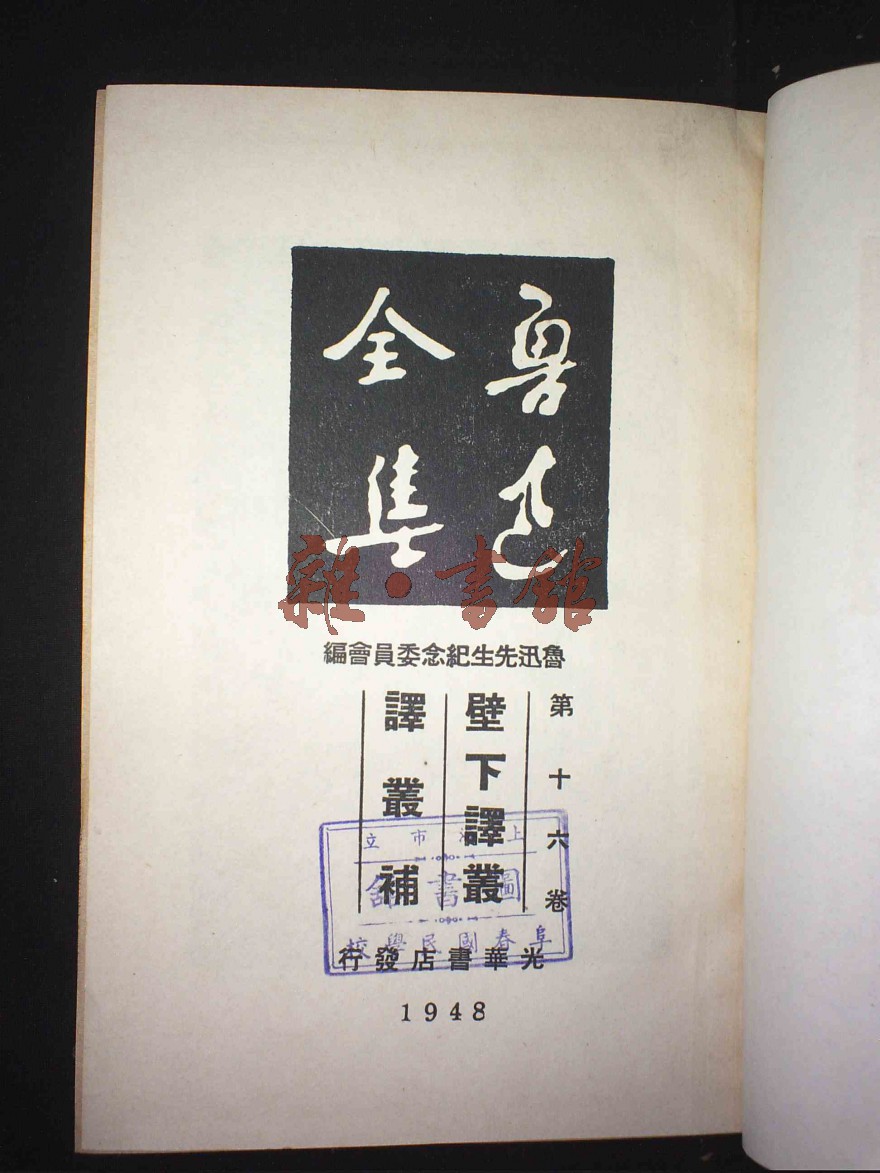 魯迅
全集
雜·書館
魯迅先生紀念委員會編
第十六卷
壁下譯叢
譯叢補
上海市立
圖書館
阜春國民學校
光華書店發行
1948